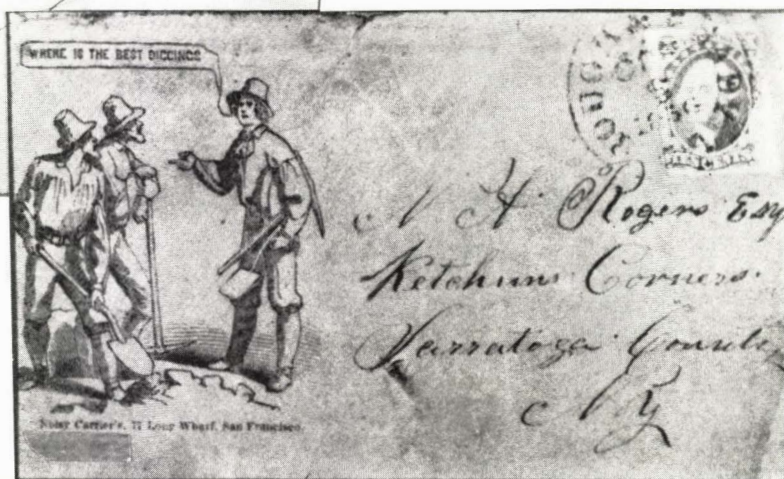 WHERE IS THE BEST DIGGINGS
TEN CENTS
N H Rogers Esq
Ketchums Corners.
Sarratoga County
N Y
Noisy Carrier's, 77 Long Wharf, San Francisco.